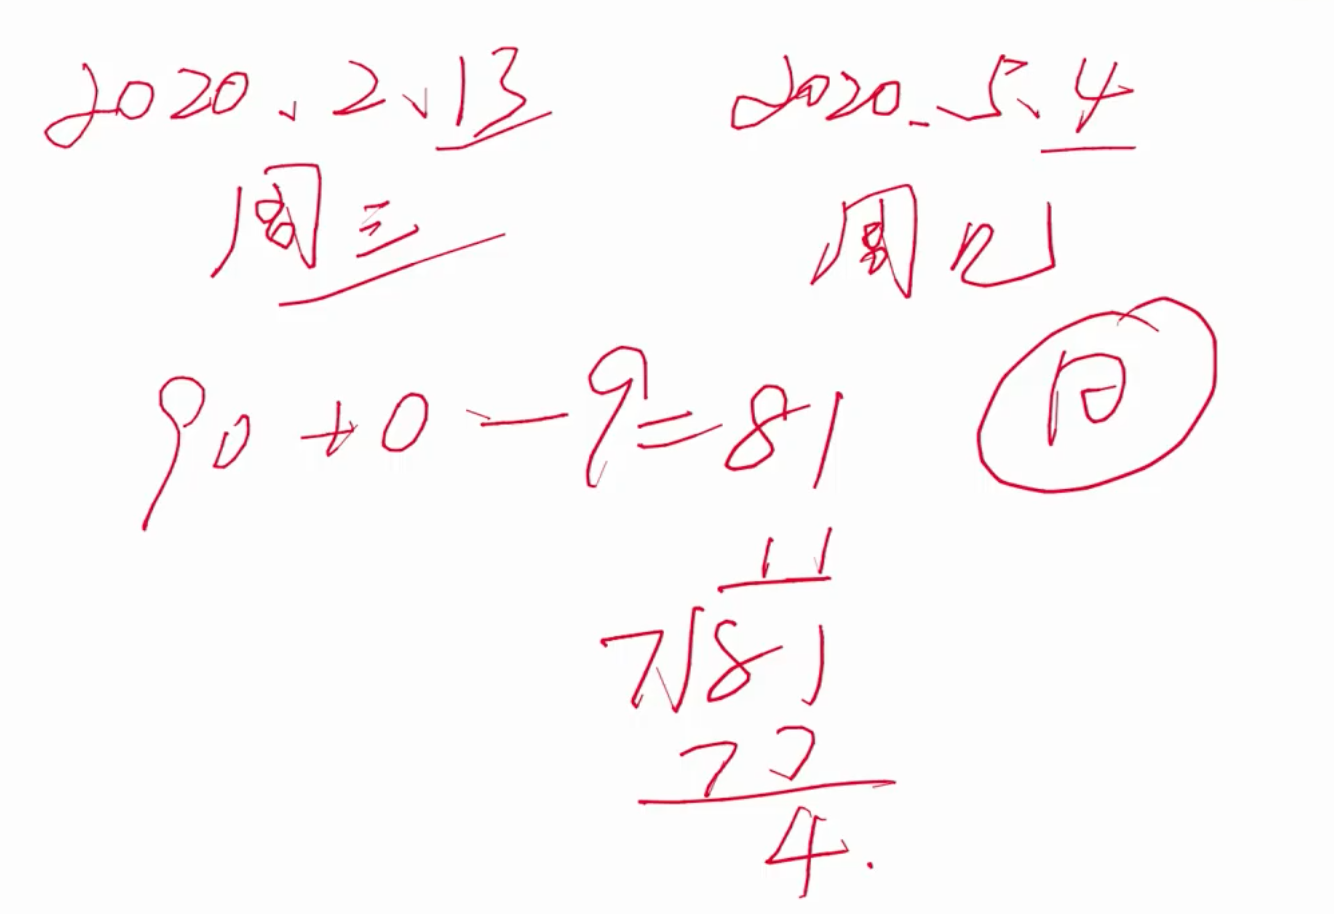 2020、2、13
2020、5、4
周三
周几
90+0-9=81
日
11
7√81
77
4.